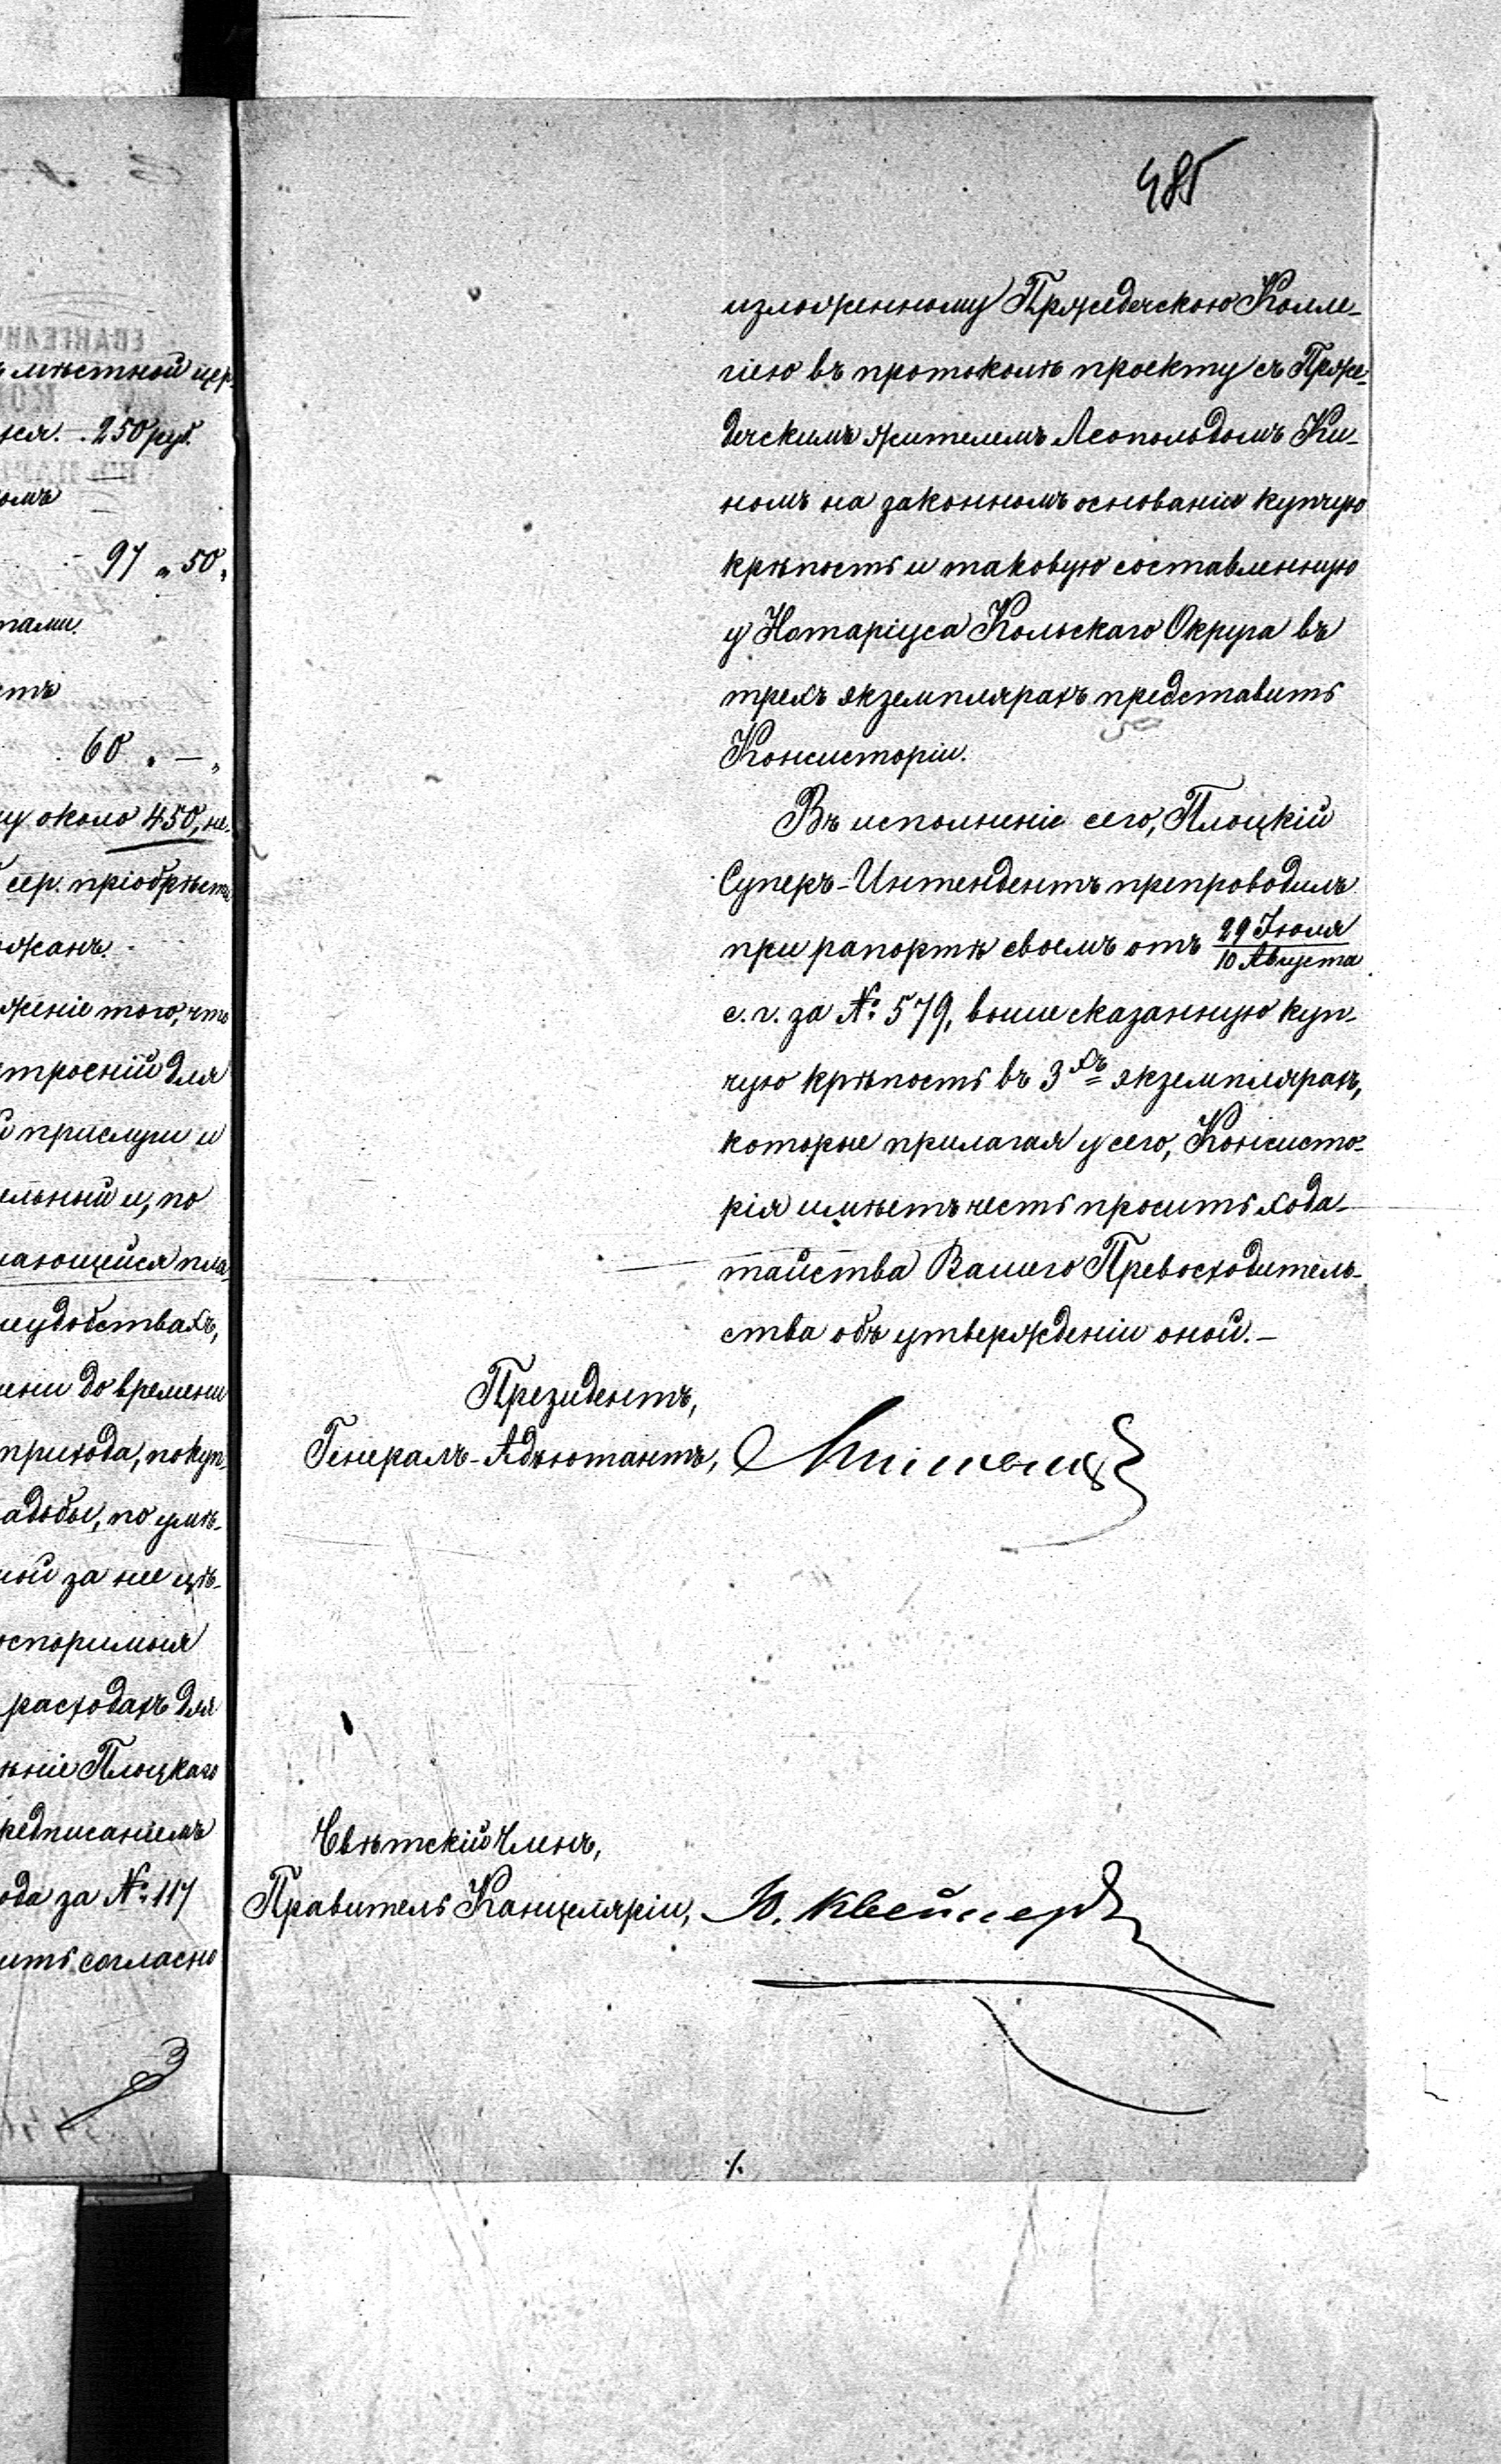 485
изложенному Пржедечскою Колле-
гіею въ протоколѣ проекту съ Прже-
дечскимъ жителемъ Леопольдомъ Ки-
номъ на законномъ основаніи купчую
крѣпость и таковую составленную
у Нотаріуса Кольскаго Округа въ
трехъ экземплярахъ представить
Консисторіи.
Въ исполненіе сего, Плоцкій
Суперъ-Интендентъ препроводилъ
при рапортѣ своемъ отъ 29 Іюля / 10 Августа
с. г. за № 579, выше сказанную куп-
чую крѣпость въ 3хъ экземплярахъ,
которые прилагая у сего, Консисто-
рія имѣетъ честь просить хода-
тайства Вашего Превосходитель-
ства объ утвержденіи оной.—
Президентъ,
Генералъ-Адъютантъ,
Свѣтскій Членъ,
Правитель Канцеляріи, Ю.
мѣстной цер
250 руб.
омъ
97 " 50 "
тами.
60 " — "
около 450, не-
сер. пріобрѣсти
ожанъ.
женіе того, что
строеній для
прислуги и
ельный и, по
ающейся пла
неудобствахъ,
до времени
прихода, покуп
адьбы, по умѣ-
ной за нее цѣ-
споримыя
расходахъ для
ѣніе Плоцкаго
редписаніемъ
ода за № 117
ить согласно